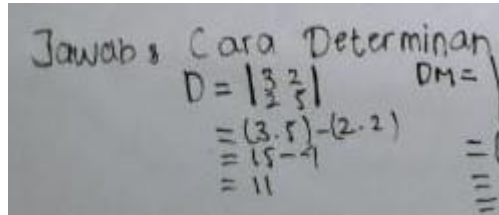 Jawab : Cara Determinan
D = |3 2| DM = |
|2 5|
= (3.5)-(2.2)
= 15-4 =
= 11 =
=